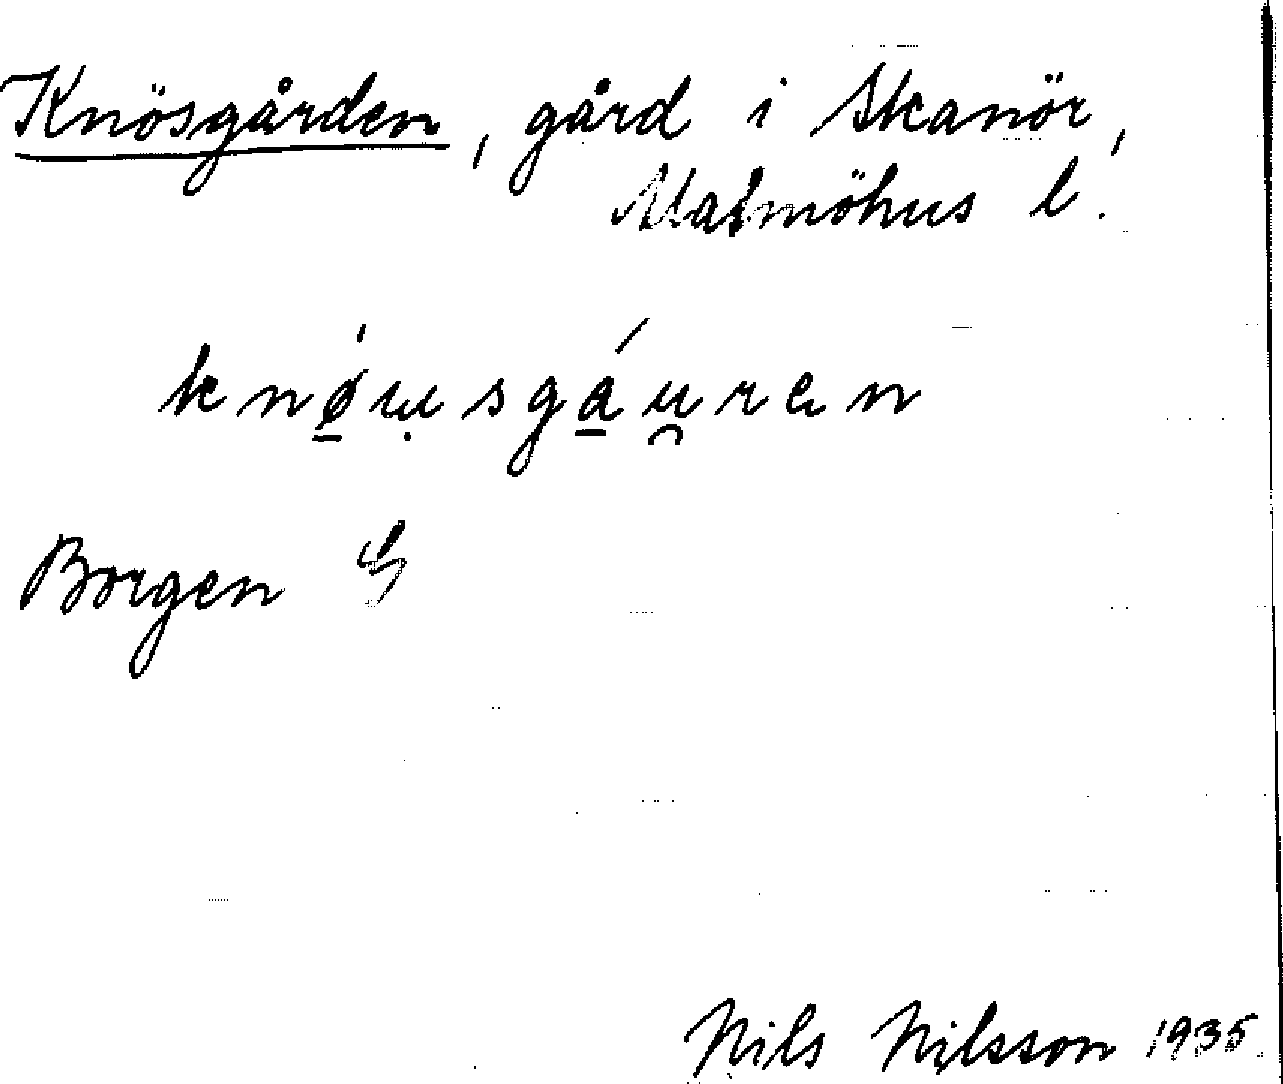 Knösgården, gård i Skanör,
Malmöhus l.
knǿ̠ɯ̣sgá̠u̯rɐn
Borgen
Nils Nilsson 1935